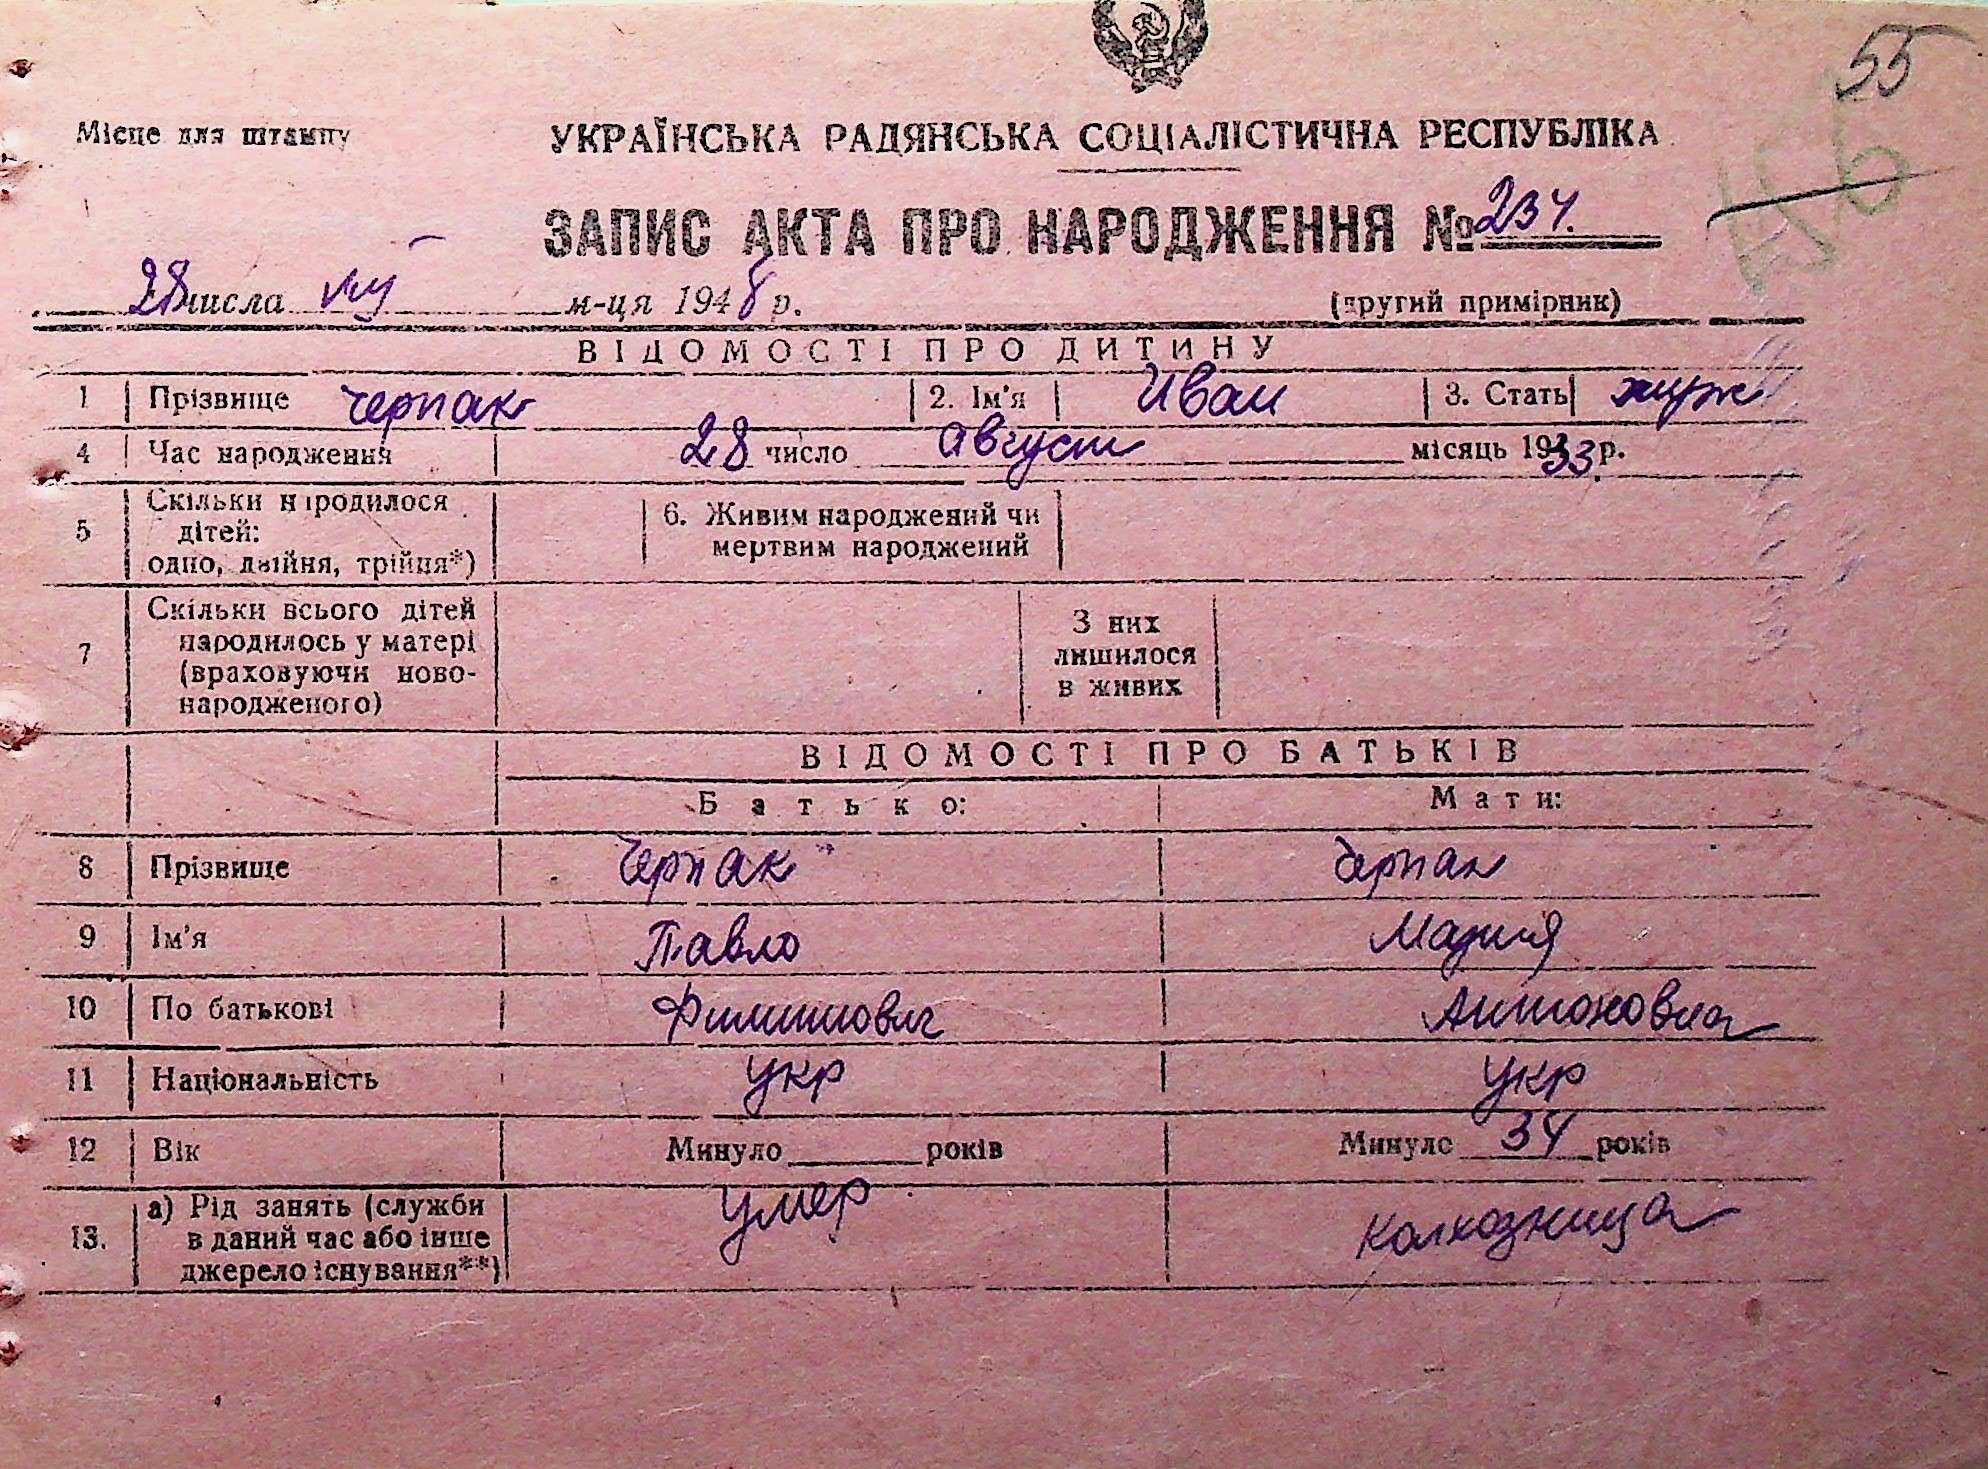 55
Місце для штампу
УКРАЇНСЬКА РАДЯНСЬКА СОЦІАЛІСТИЧНА РЕСПУБЛІКА
ЗАПИС АКТА ПРО НАРОДЖЕННЯ № 234.
28 числа VIII м-ця 1948 р. (другий примірник)
ВІДОМОСТІ ПРО ДИТИНУ
1 Прізвище Черпак 2. Ім'я Иван 3. Стать муж
4 Час народження 28 число Август місяць 1933 р.
5 Скільки народилося
дітей:
одно, двійня, трійня*)
6. Живим народжений чи
мертвим народжений
7 Скільки всього дітей
народилось у матері
(враховуючи ново-
народженого)
З них
лишилося
в живих
ВІДОМОСТІ ПРО БАТЬКІВ
Батько: Мати:
8 Прізвище Черпак Черпак
9 Ім'я Павло Мария
10 По батькові Филиппович Антоновна
11 Національність укр укр
12 Вік Минуло років Минуло 34 років
13. а) Рід занять (служби
в даний час або інше
джерело існування**)
умер колхозница